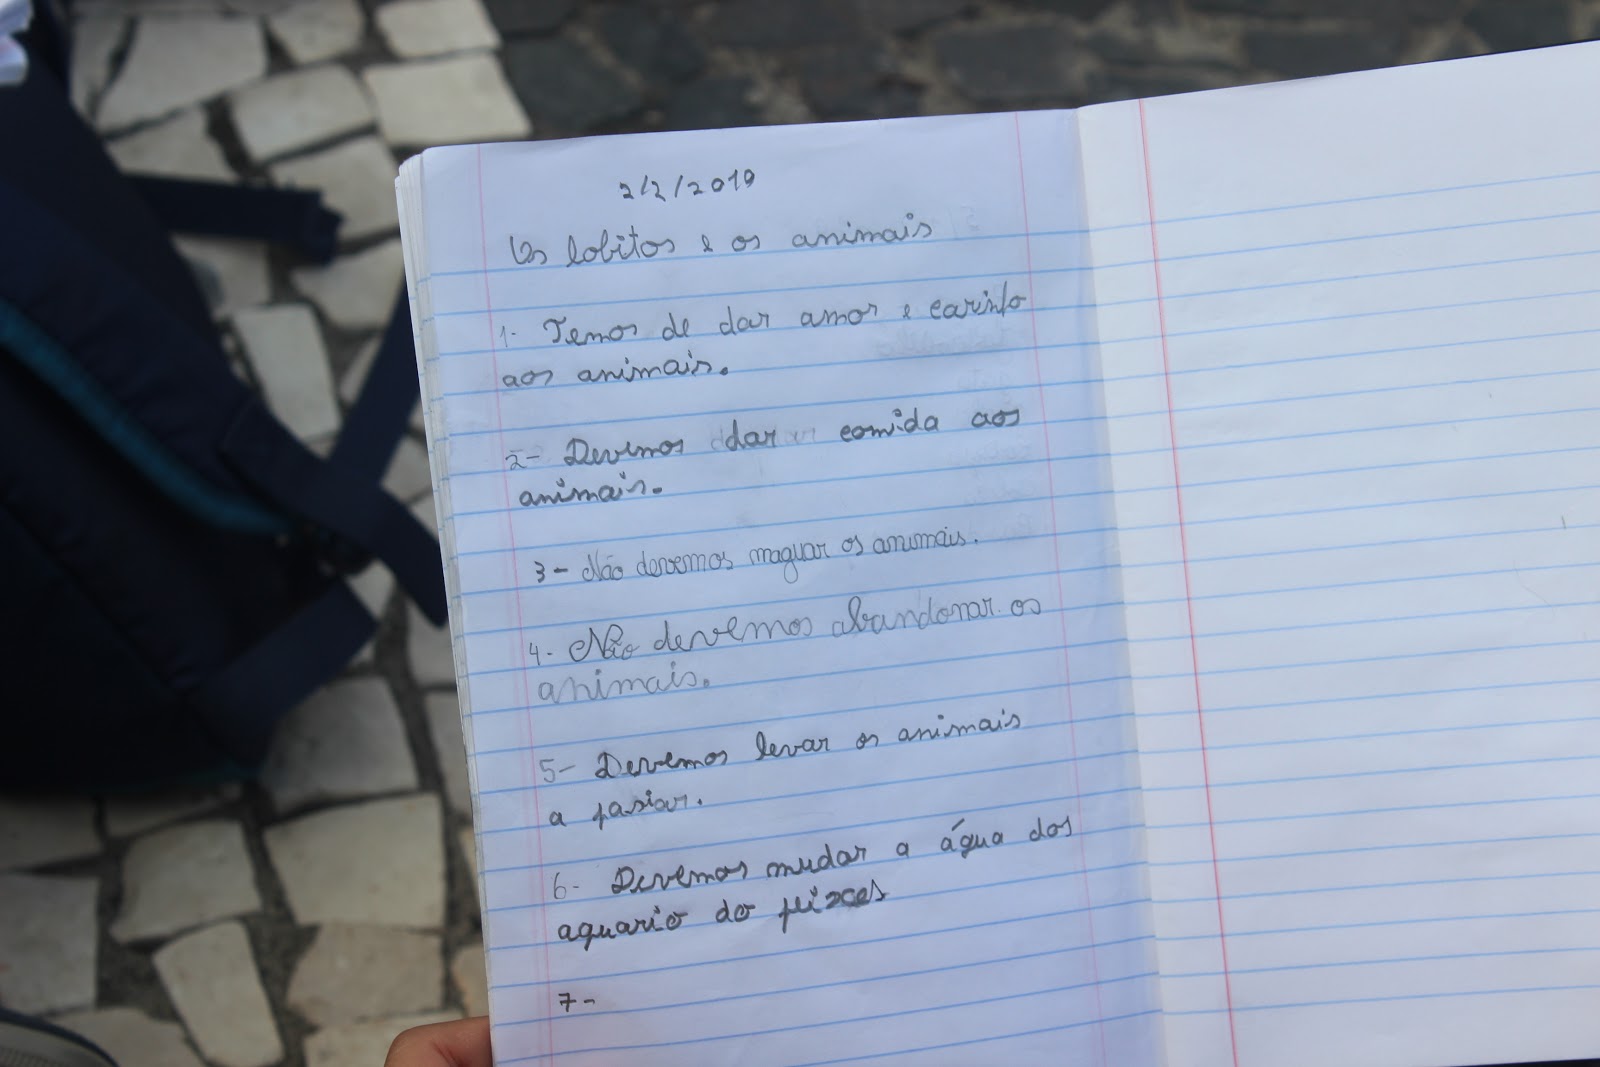 2/2/2019
Os lobitos e os animais
1- Temos de dar amor e carinho
aos animais.
2- Devemos dar comida aos
animais.
3- Não devemos maguar os animais.
4- Não devemos abandonar os
animais.
5- Devemos levar os animais
a pasiar.
6- Devemos mudar a água dos
aquario do peixes
7-